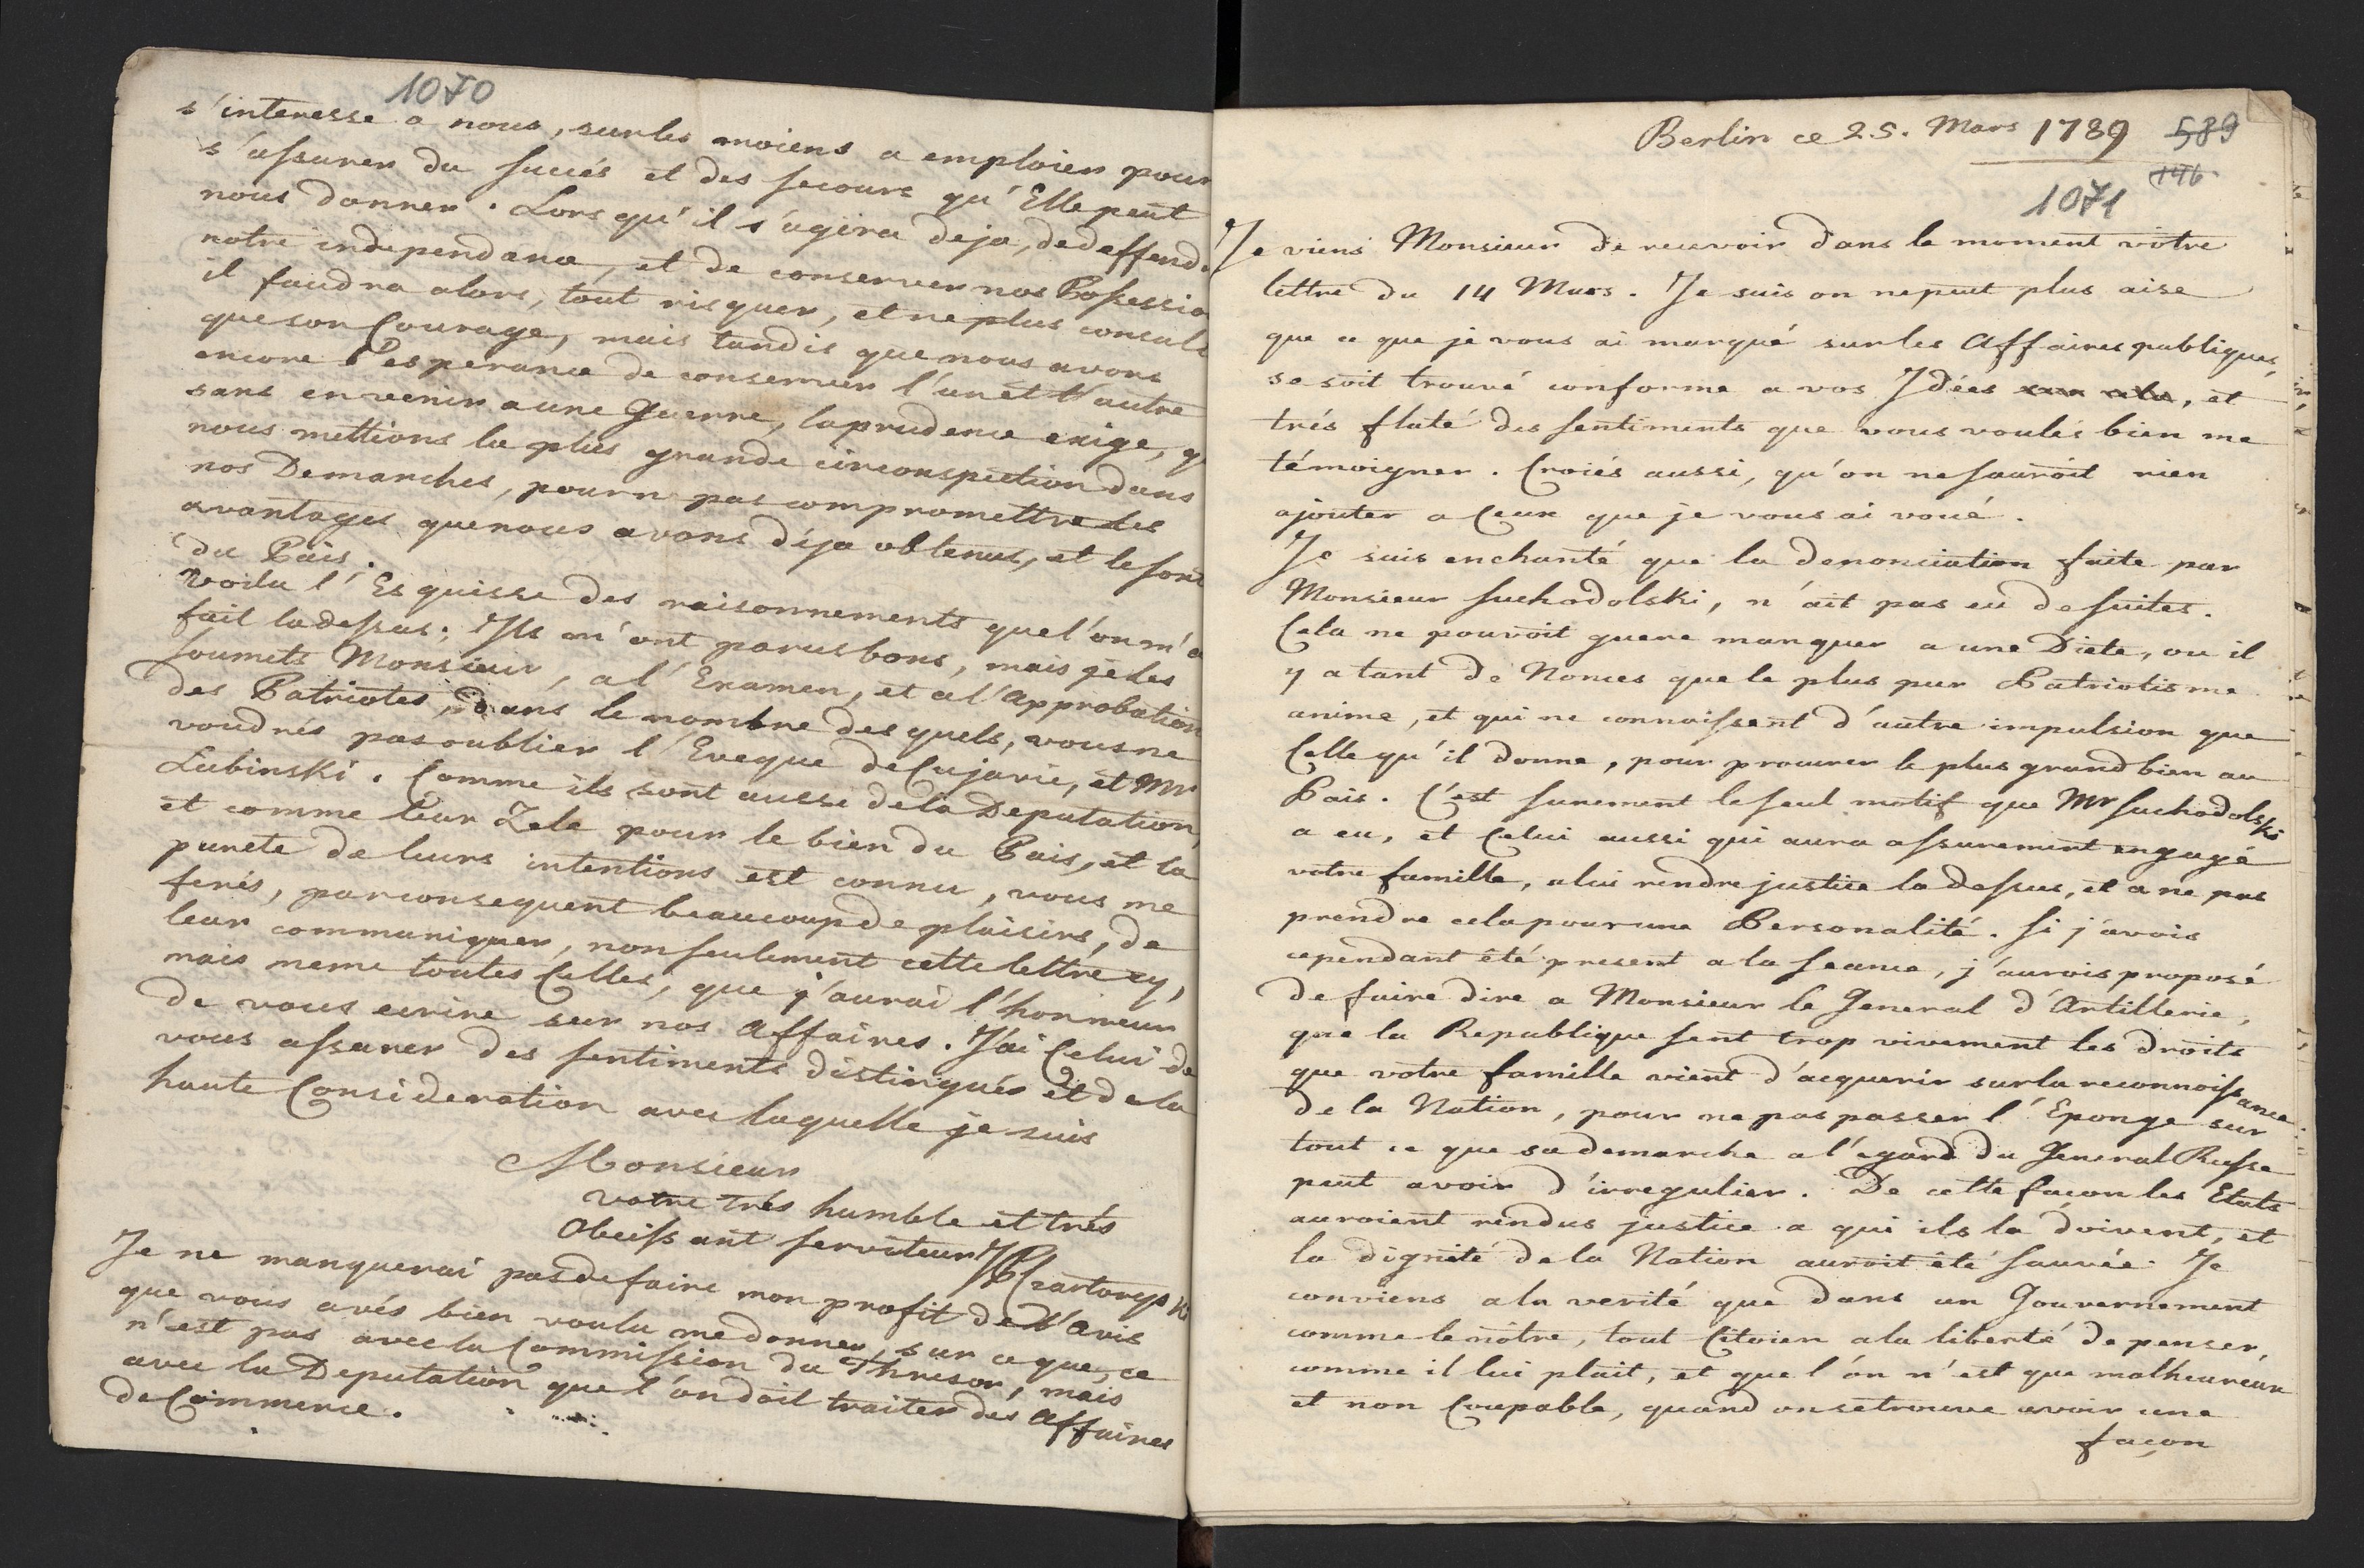 1070
s'interesse a nous, sur les moiens a emploier pour
s'assurer du succés et des secours qu'Elle peut
nous donner. Lors qu'il s'agira deja, de deffend
notre independance, et de conserver nos Possessio
il faudra alors, tout risquer, et ne plus consult
que son Courage, mais tandis que nous avons
encore l'esperance de conserver l'un et l'autre
sans en venir a une Guerre, la prudence exige, q
nous mettions la plus grande circonspection dans
nos Demarches, pour n pas compromettre les
avantages que nous avons déja obtenus, et le sort
du Païs.
Voila l'Esquisse des raisonnements que l'on m'a
fait la dessus; Ils m'ont parus bons, mais je les
soumets Monsieur, a l'Examen, et a l'Approbation
des Patriotes, dans le nombre des quels, vous ne
voudrés pas oublier l'Eveque de Cujavie, et Mr
Lubinski. Comme ils sont aussi de la Deputation,
et comme leur Zele pour le bien du Pais, et la
pureté de leurs intentions est connu, vous me
ferés, par consequent beaucoup de plaisirs, de
leur communiquer, non seulement cette lettre cy,
mais meme toutes Celles, que j'aurai l'honneur
de vous ecrire sur nos Affaires. J'ai Celui de
vous assurer des sentiments distingués et de la
haute Consideration avec laquelle je suis
Monsieur
votre trés humble et trés
Obeissant serviteur JP Czartorys ki
Je ne manquerai pas de faire mon profit de l'avis
que vous avés bien voulu me donner, sur ce que, ce
n'est pas avec la Commission du Thresor, mais
avec la Deputation que l'on doit traiter des Affaires
de Commerce.
Berlin ce 25. Mars 1789 589
146
1071
Je viens Monsieur de recevoir dans le moment vôtre
lettre du 14 Mars. Je suis on ne peut plus aise
que ce que je vous ai marqué sur les Affaires publiques,
se soit trouvé conforme a vos Idées sur cela, et
trés flaté des sentiments que vous voulés bien me
témoigner. Croiés aussi, qu'on ne sauroit rien
ajouter a Ceux que je vous ai voué.
Je suis enchanté que la denonciation faite par
Monsieur Suchodolski, n'ait pas eu de suites.
Cela ne pouvoit guere manquer a une Diete, ou il
y a tant de Nonces que le plus pur Patriotisme
anime, et qui ne connoissent d'autre impulsion que
Celle qu'il donne, pour procurer le plus grand bien au
Pais. C'est surement le seul motif que Mr Suchodolski
a eu, et Celui aussi qui aura assurement engagé
votre famille, a lui rendre justice la dessus, et a ne pas
prendre cela pour une Personalité. Si j'avois
cependant été present a la seance, j'aurois proposé
de faire dire a Monsieur le General d'Artillerie,
que la Republique sent trop vivement les droits
que votre famille vient d'acquerir sur la reconnoissance
de la Nation, pour ne pas passer l'Eponge sur
tout ce que sa demarche a l'égard du General Russe
peut avoir d'irregulier. De cette façon les Etats
auroient rendus justice a qui ils la doivent, et
la dignité de la Nation auroit été sauvée. Je
conviens a la verité que dans un Gouvernement
comme le nôtre, tout Citoien a la liberté de penser,
comme il lui plait, et que l'on n'est que malheureux
et non Coupable, quand on se trouve avoir une
façon